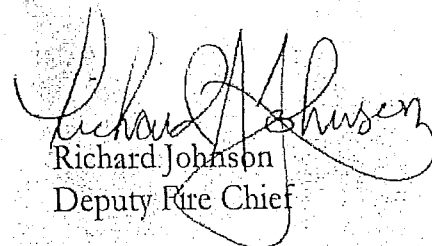 Richard Johnson
Richard Johnson
Deputy Fire Chief